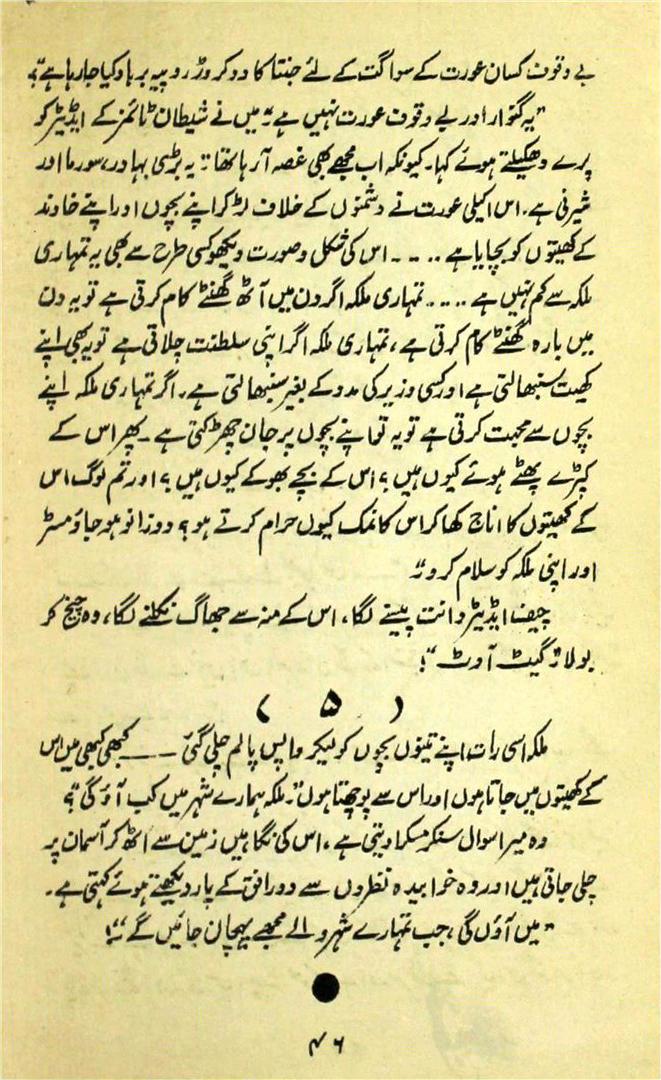 بے وقوف کسان عورت کے سواگت کے لئے جنتا کا دو کروڑ روپیہ برباد کیا جا رہا ہے"؟
"یہ گنوار اور بے وقوف عورت نہیں ہے" میں نے شیطان ٹائمز کے ایڈیٹر کو
پرے دھکیلتے ہوئے کہا۔ کیونکہ اب مجھے بھی غصہ آ رہا تھا: "یہ بڑی بہادر، سورما اور
شیرنی ہے۔ اس اکیلی عورت نے دشمنوں کے خلاف لڑ کر اپنے بچوں اور اپنے خاوند
کے کھیتوں کو بچایا ہے ۔۔۔۔ اس کی شکل و صورت دیکھو کسی طرح سے بھی یہ تمہاری
ملکہ سے کم نہیں ہے ۔۔۔۔ تمہاری ملکہ اگر دن میں آٹھ گھنٹے کام کرتی ہے تو یہ دن
میں بارہ گھنٹے کام کرتی ہے، تمہاری ملکہ اگر اپنی سلطنت چلاتی ہے تو یہ بھی اپنے
کھیت سنبھالتی ہے اور کسی وزیر کی مدد کے بغیر سنبھالتی ہے۔ اگر تمہاری ملکہ اپنے
بچوں سے محبت کرتی ہے تو یہ تو اپنے بچوں پر جان چھڑکتی ہے۔ پھر اس کے
کپڑے پھٹے ہوئے کیوں ہیں؟ اس کے بچے بھوکے کیوں ہیں؟ اور تم لوگ اس
کے کھیتوں کا اناج کھا کر اس کا نمک کیوں حرام کرتے ہو؟ دوزانو ہو جاؤ مسٹر
اور اپنی ملکہ کو سلام کرو"
چیف ایڈیٹر دانت پیسنے لگا، اس کے منہ سے جھاگ نکلنے لگا، وہ چیخ کر
بولا "گیٹ آوٹ"!
(۵)
ملکہ اسی رات، اپنے تینوں بچوں کو لیکر واپس پالم چلی گئی ۔۔۔ کبھی کبھی میں اس
کے کھیتوں میں جاتا ہوں اور اس سے پوچھتا ہوں "ملکہ ہمارے شہر میں کب آؤ گی"؟
وہ میرا سوال سنکر مسکرا دیتی ہے، اس کی نگاہیں زمین سے اٹھ کر آسمان پر
چلی جاتی ہیں اور وہ خوابیدہ نظروں سے دور افق کے پار دیکھتے ہوئے کہتی ہے۔
"میں آؤں گی، جب تمہارے شہر والے مجھے پہچان جائیں گے"!
۴۶